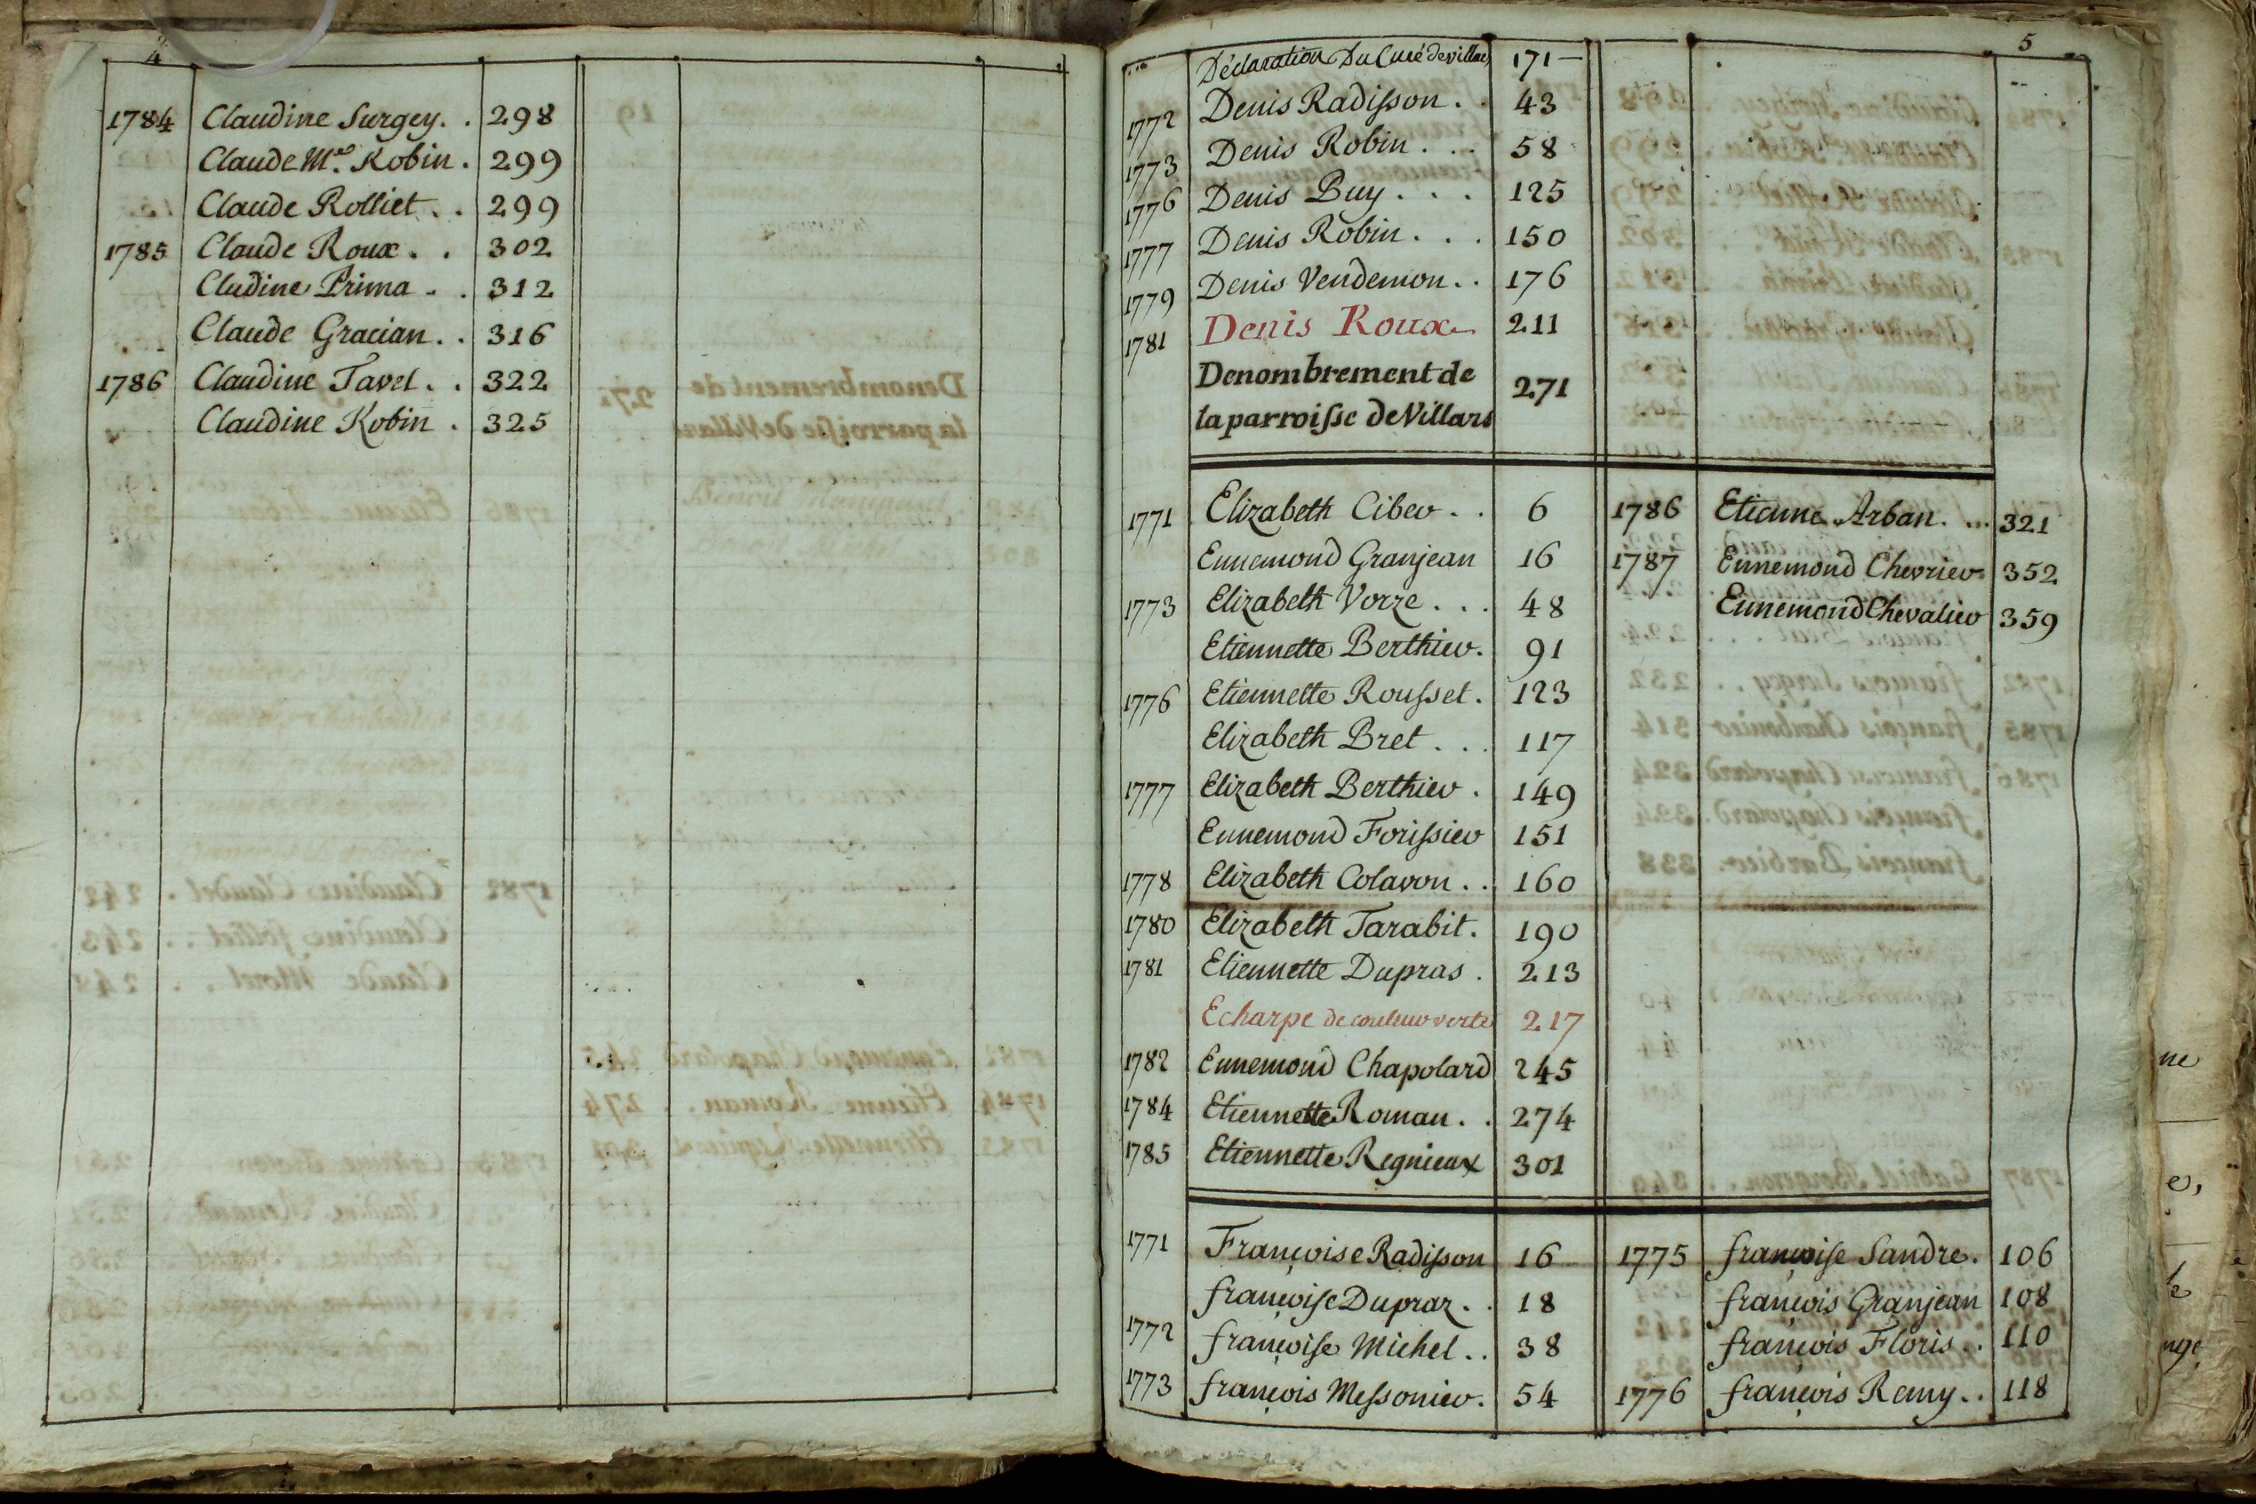 4
1784 Claudine Surgey. . 298
Claude Me. Robin . 299
Claude Rolliet . . 299
1785 Claude Roux . . 302
Cludine Prima . . 312
Claude Gracian . . 316
1786 Claudine Tavel . . 322
Claudine Robin . 325
5
Déclaration Du Curé de villars 171
1772 Denis Radisson . . 43
1773 Denis Robin . . . 58
1776 Denis Buy . . . 125
1777 Denis Robin . . . 150
1779 Denis Vendemon . . 176
1781 Denis Roux 211
Denombrement de
la parroisse de Villars 271
1771 ElizabethCiber . . 6
Ennemond Granjean 16
1773 Elizabeth Vorze . . . 48
Etiennette Berthier. 91
1776 Etiennette Rousset . 123
Elizabeth Bret . . . 117
1777 Elizabeth Berthier . 149
Ennemond Forissier 151
1778 Elizabeth Colavon . . 160
1780 Elizabeth Tarabit. 190
1781 Etiennette Dupras . 213
Echarpe de couleur verte 217
1782 Ennemond Chapolard 245
1784 Etiennette Roman . . 274
1785 Etiennette Regnieux 301
1786 Etienne Arban. ... 321
1787 Ennemond Chevrier 352
Ennemond Chevalier 359
1771 Françoise Radisson 16
françoise Dupraz . . 18
1772 françoise Michel . . 38
1773 françois Messonier . 54
1775 françoise Sandre . 106
françois Granjean 108
françois Floris . . 110
1776 françois Remy . . 118